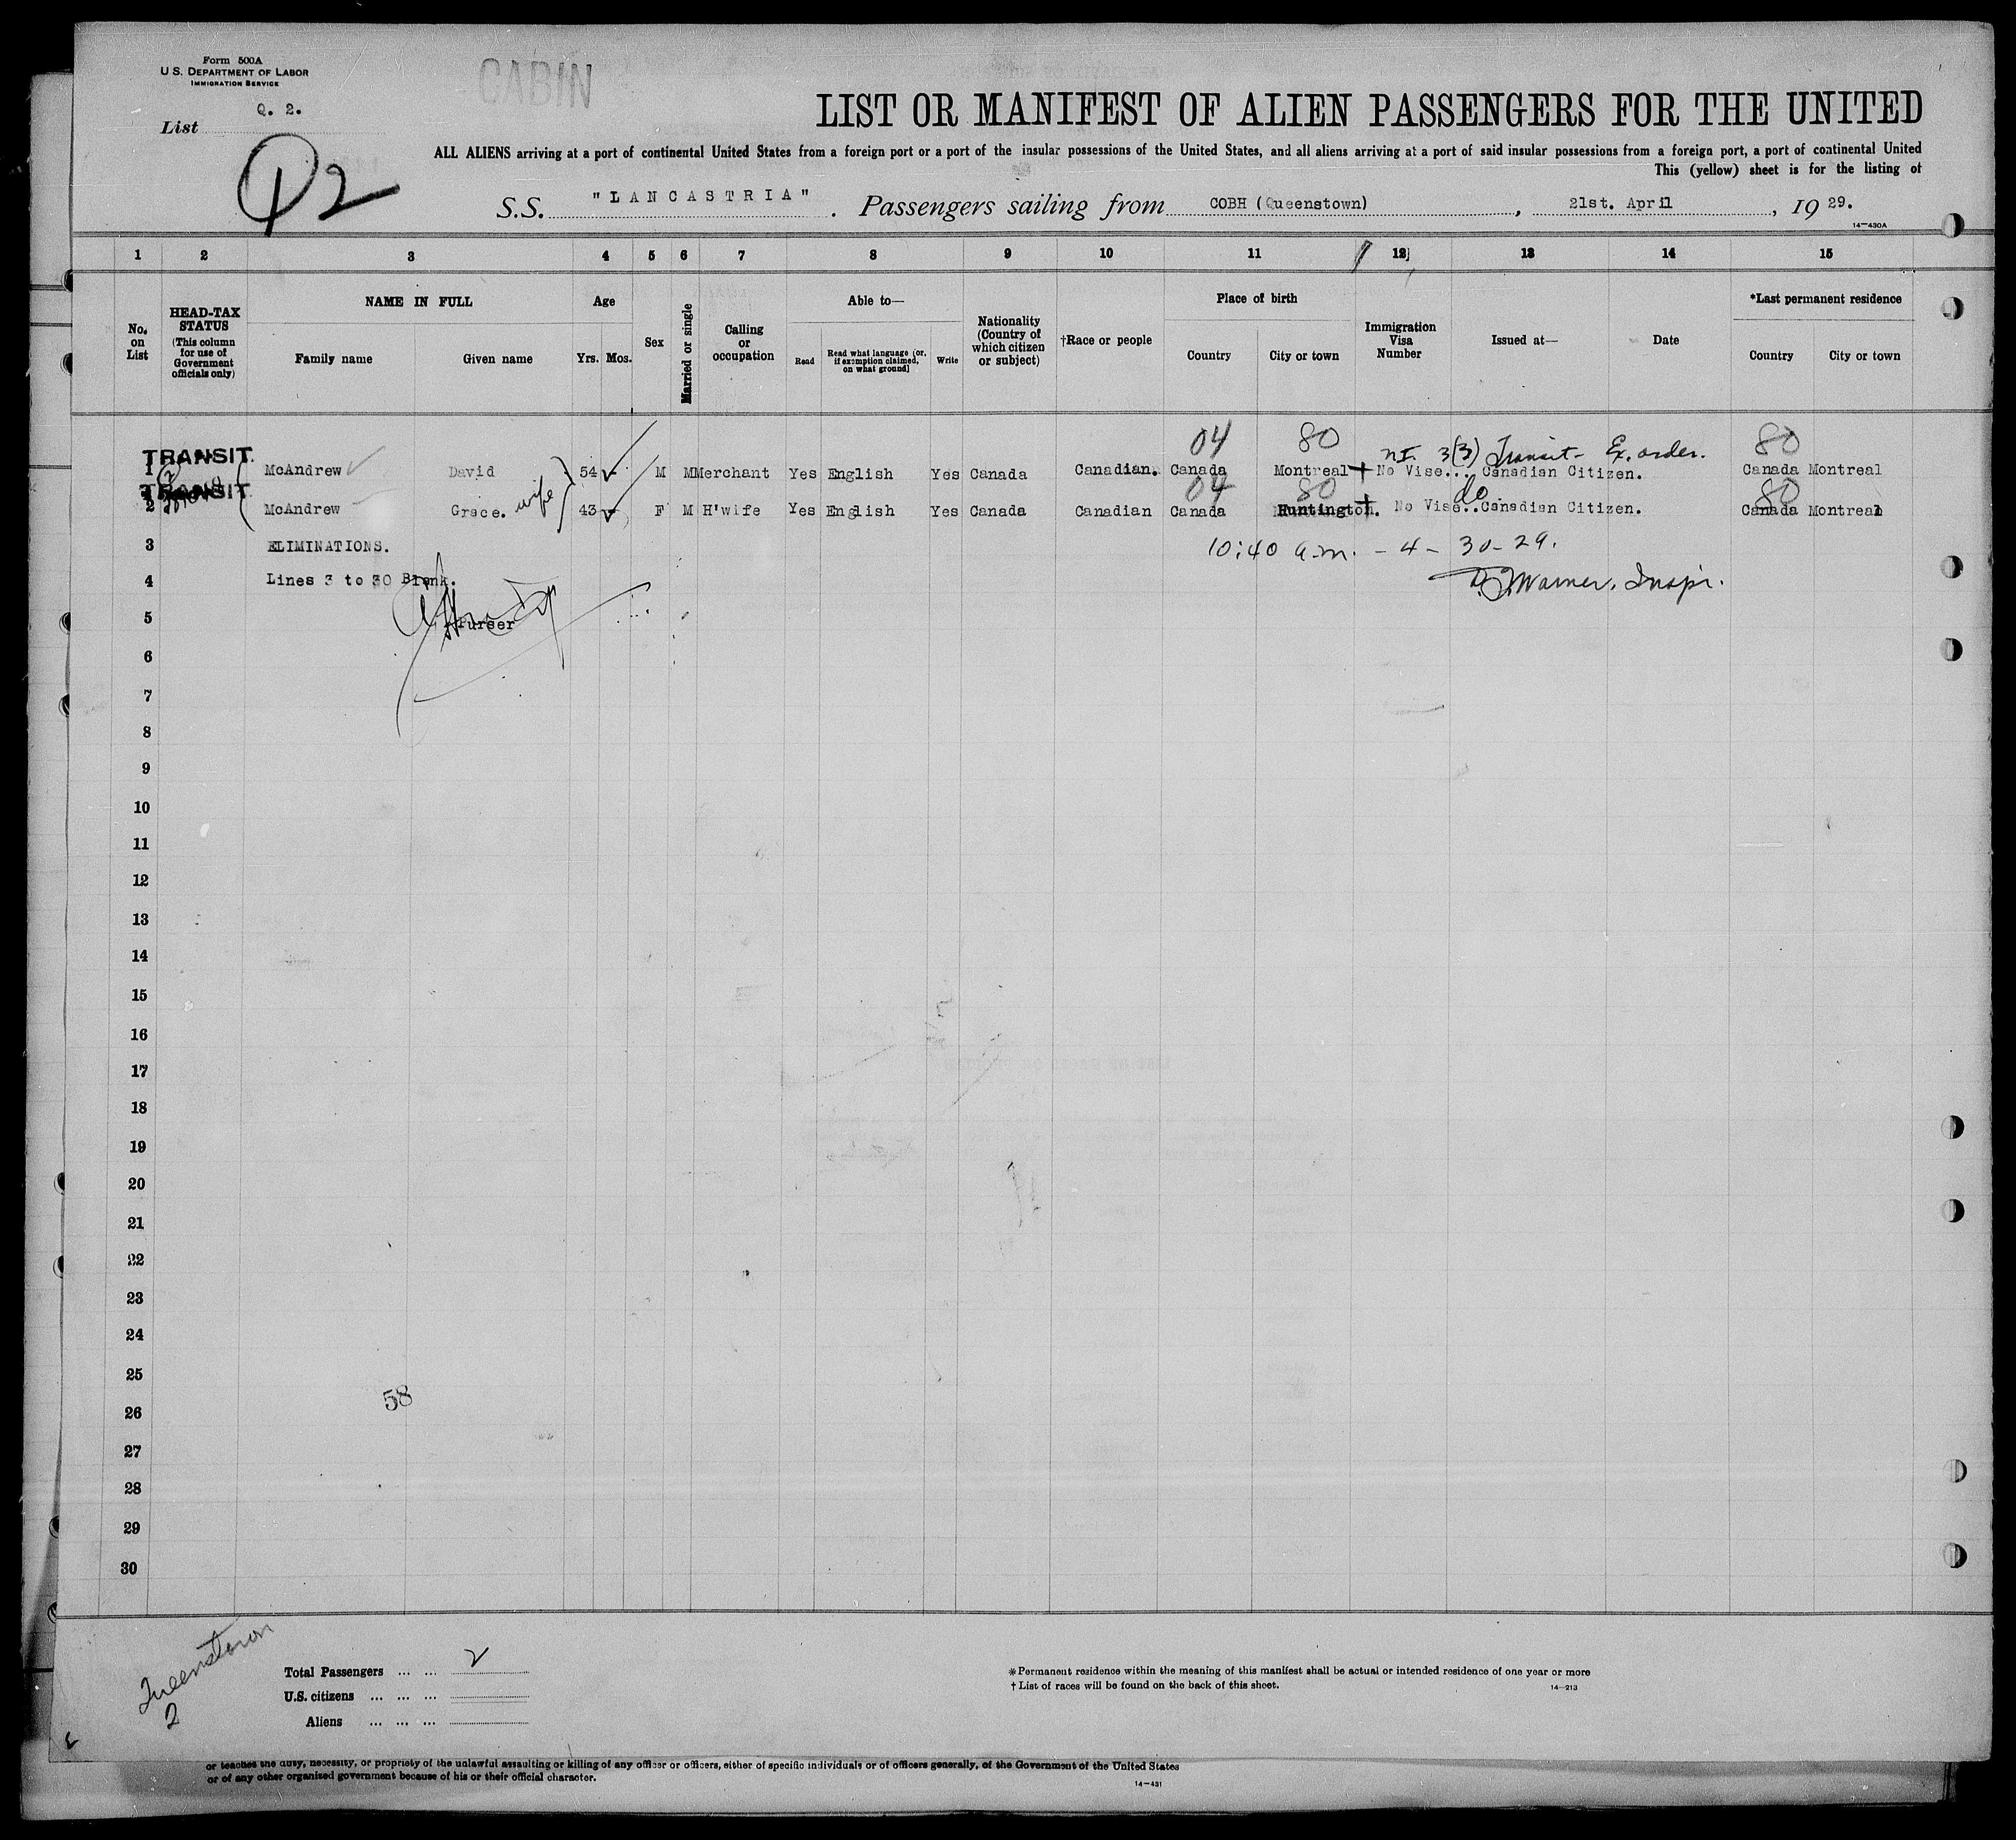 Form 500A
U.S. DEPARTMENT OF LABOR
IMMIGRATION SERVICE
CABIN
List Q. 2.
Q2
LIST OR MANIFEST OF ALIEN PASSENGERS FOR THE UNITED
ALL ALIENS arriving at a port of continental United States from a foreign port or a port of the insular possessions of the United States, and all aliens arriving at a port of said insular possessions from a foreign port, a port of continental United
This (yellow) sheet is for the listing of
S.S. "LANCASTRIA" . Passengers sailing from COBH (Queenstown) , 21st. April , 19 29.
14—430A
1 2 3 4 5 6 7 8 9 10 11 12 13 14 15
No. on List
HEAD-TAX STATUS (This column for use of Government officials only)
NAME IN FULL
Family name Given name
Age
Yrs. Mos.
Sex
Married or single
Calling or occupation
Able to—
Read
Read what language (or, if exemption claimed, on what ground)
Write
Nationality (Country of which citizen or subject)
†Race or people
Place of birth
Country City or town
Immigration Visa Number
Issued at—
Date
*Last permanent residence
Country City or town
04 80 80
TRANSIT. nI 3(3) Transit- Ex. order.
1 McAndrew David 54 M M Merchant Yes English Yes Canada Canadian. Canada Montreal No Vise... Canadian Citizen. Canada Montreal
TRANSIT. wife 04 80 do 80
2 McAndrew Grace. 43 F M H'wife Yes English Yes Canada Canadian Canada Huntington. No Vise..Canadian Citizen. Canada Montreal
3 ELIMINATIONS. 10:40 a.m. - 4 - 30 - 29.
4 Lines 3 to 30 Blank. Warner, Inspr.
5 Purser
6
7
8
9
10
11
12
13
14
15
16
17
18
19
20
21
22
23
24
25
58
26
27
28
29
30
Queenstown
2
Total Passengers ... ... 2
U.S. citizens ... ... ...
Aliens ... ... ...
*Permanent residence within the meaning of this manifest shall be actual or intended residence of one year or more
† List of races will be found on the back of this sheet.
14—213
or teaches the duty, necessity, or propriety of the unlawful assaulting or killing of any officer or officers, either of specific individuals or of officers generally, of the Government of the United States
or of any other organized government because of his or their official character.
14—431